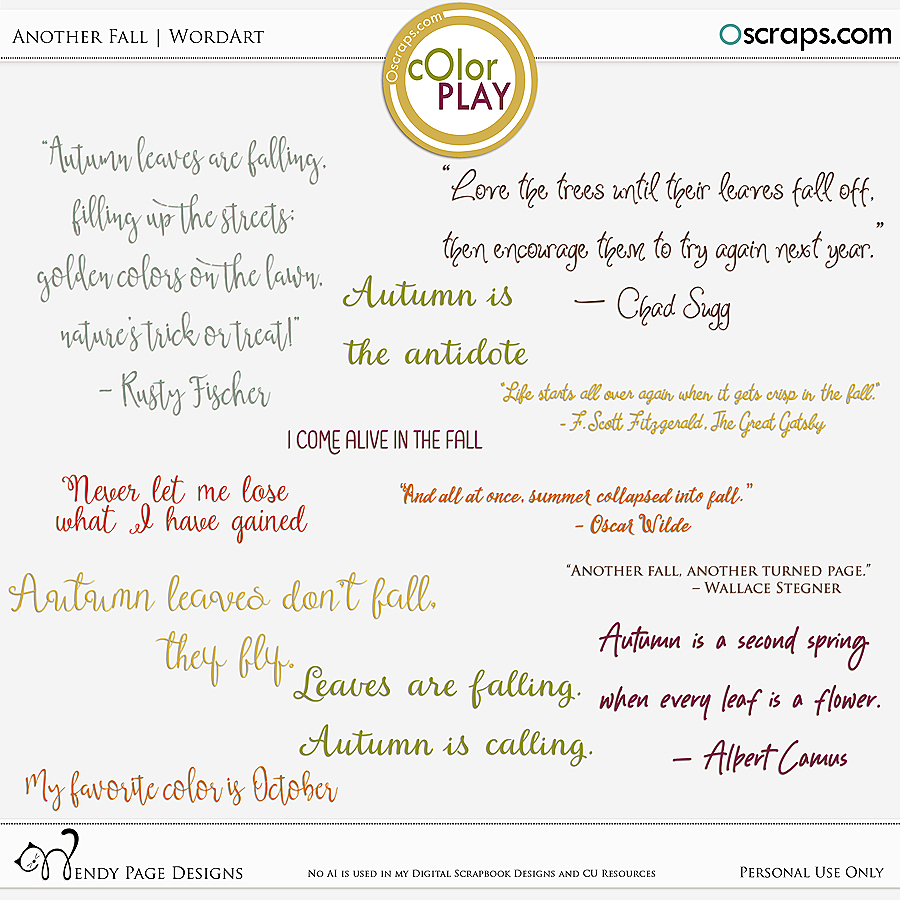 ANOTHER FALL | WORDART
Oscraps.com
cOlor
PLAY
Oscraps.com
“Autumn leaves are falling,
filling up the streets;
golden colors on the lawn,
nature's trick or treat!”
– Rusty Fischer
“Love the trees until their leaves fall off,
then encourage them to try again next year.”
— Chad Sugg
Autumn is
the antidote
“Life starts all over again when it gets crisp in the fall.”
- F. Scott Fitzgerald, The Great Gatsby
I COME ALIVE IN THE FALL
Never let me lose
what I have gained
“And all at once, summer collapsed into fall.”
- Oscar Wilde
“ANOTHER FALL, ANOTHER TURNED PAGE.”
– WALLACE STEGNER
Autumn leaves don't fall,
they fly.
Autumn is a second spring
when every leaf is a flower.
— Albert Camus
Leaves are falling.
Autumn is calling.
My favorite color is October
WENDY PAGE DESIGNS
NO AI IS USED IN MY DIGITAL SCRAPBOOK DESIGNS AND CU RESOURCES
PERSONAL USE ONLY